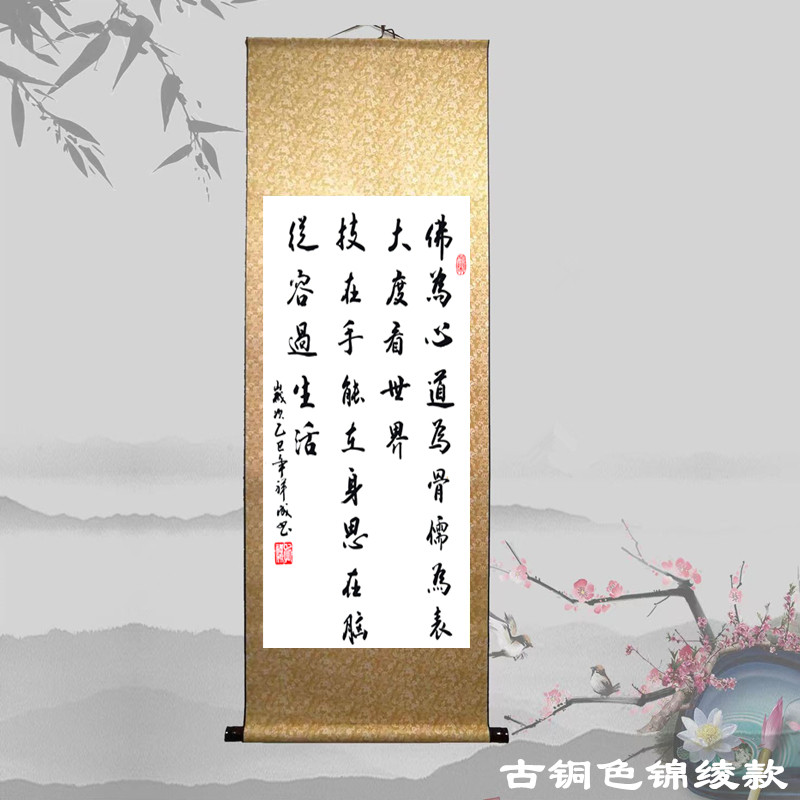 佛為心道為骨儒為表
大度看世界
技在手能在身思在腦
從容過生活
歲次乙巳年祥成书
古铜色锦绫款